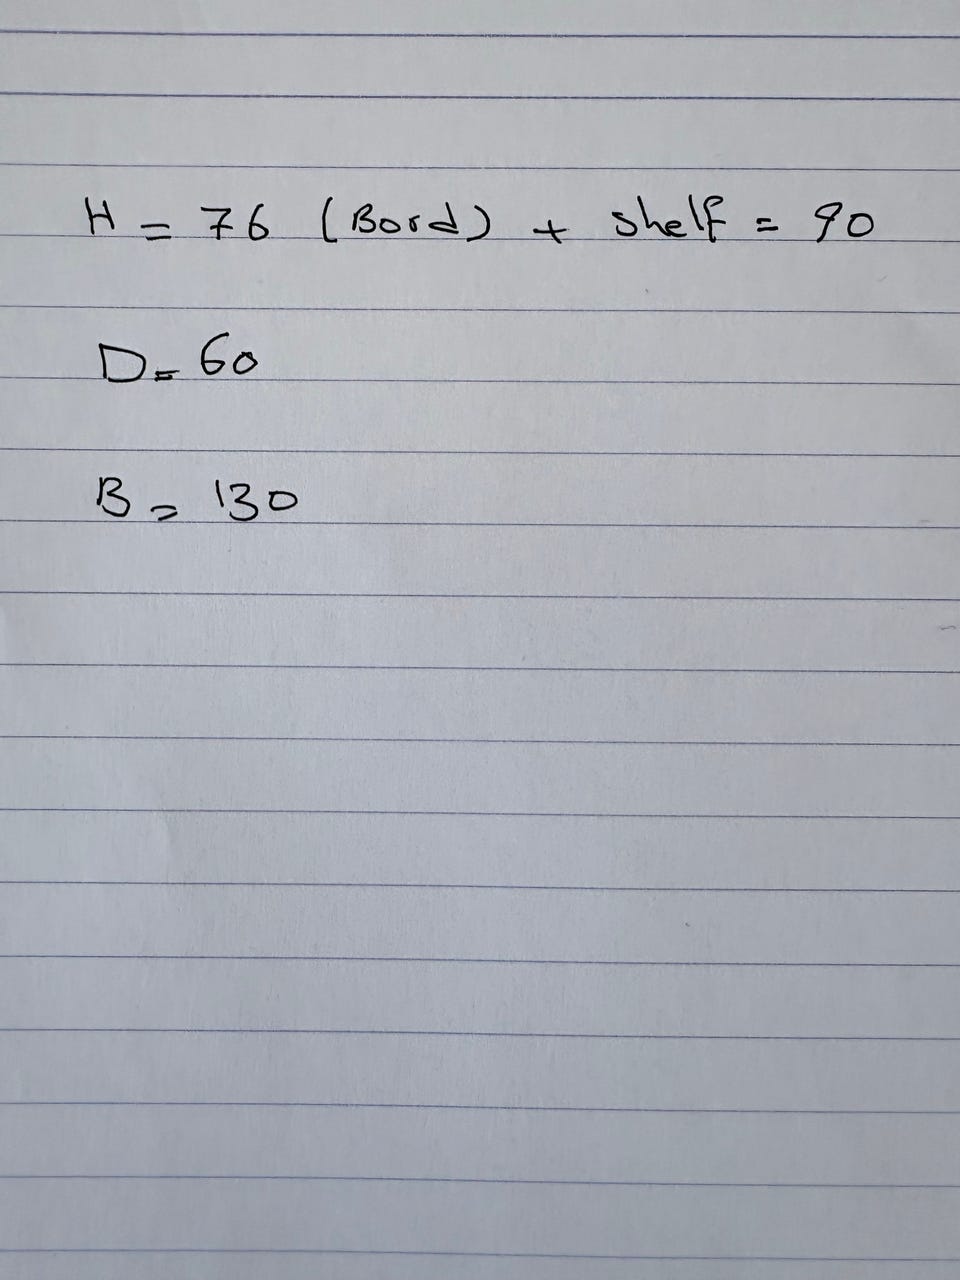 H = 76 (Bord) + shelf = 90
D = 60
B = 130